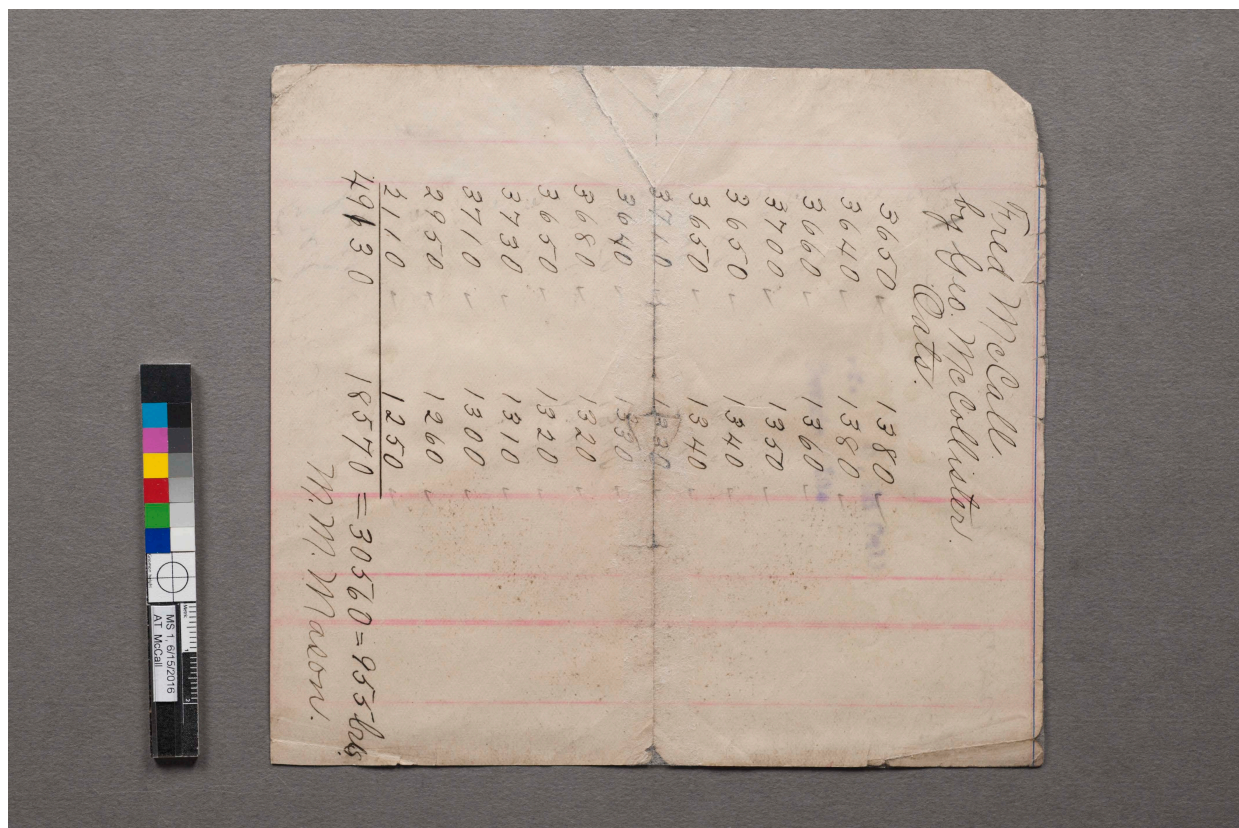 Fred McCall,
by Geo. McCollister.
Oats.
3650 ✓ 1380 ✓
3640 ✓ 1380 ✓
3660 ✓ 1360 ✓
3700 ✓ 1350 ✓
3650 ✓ 1340 ✓
3650 ✓ 1340 ✓
3710 1330
3640 ✓ 1330 ✓
3680 ✓ 1320 ✓
3650 ✓ 1320 ✓
3730 ✓ 1310 ✓
3710 ✓ 1300 ✓
2950 ✓ 1260 ✓
2110 ✓ 1250 ✓
49130 18570 = 30560 = 955 bus.
M. M. Mason.
MS 1, 6/15/2016
AT McCall